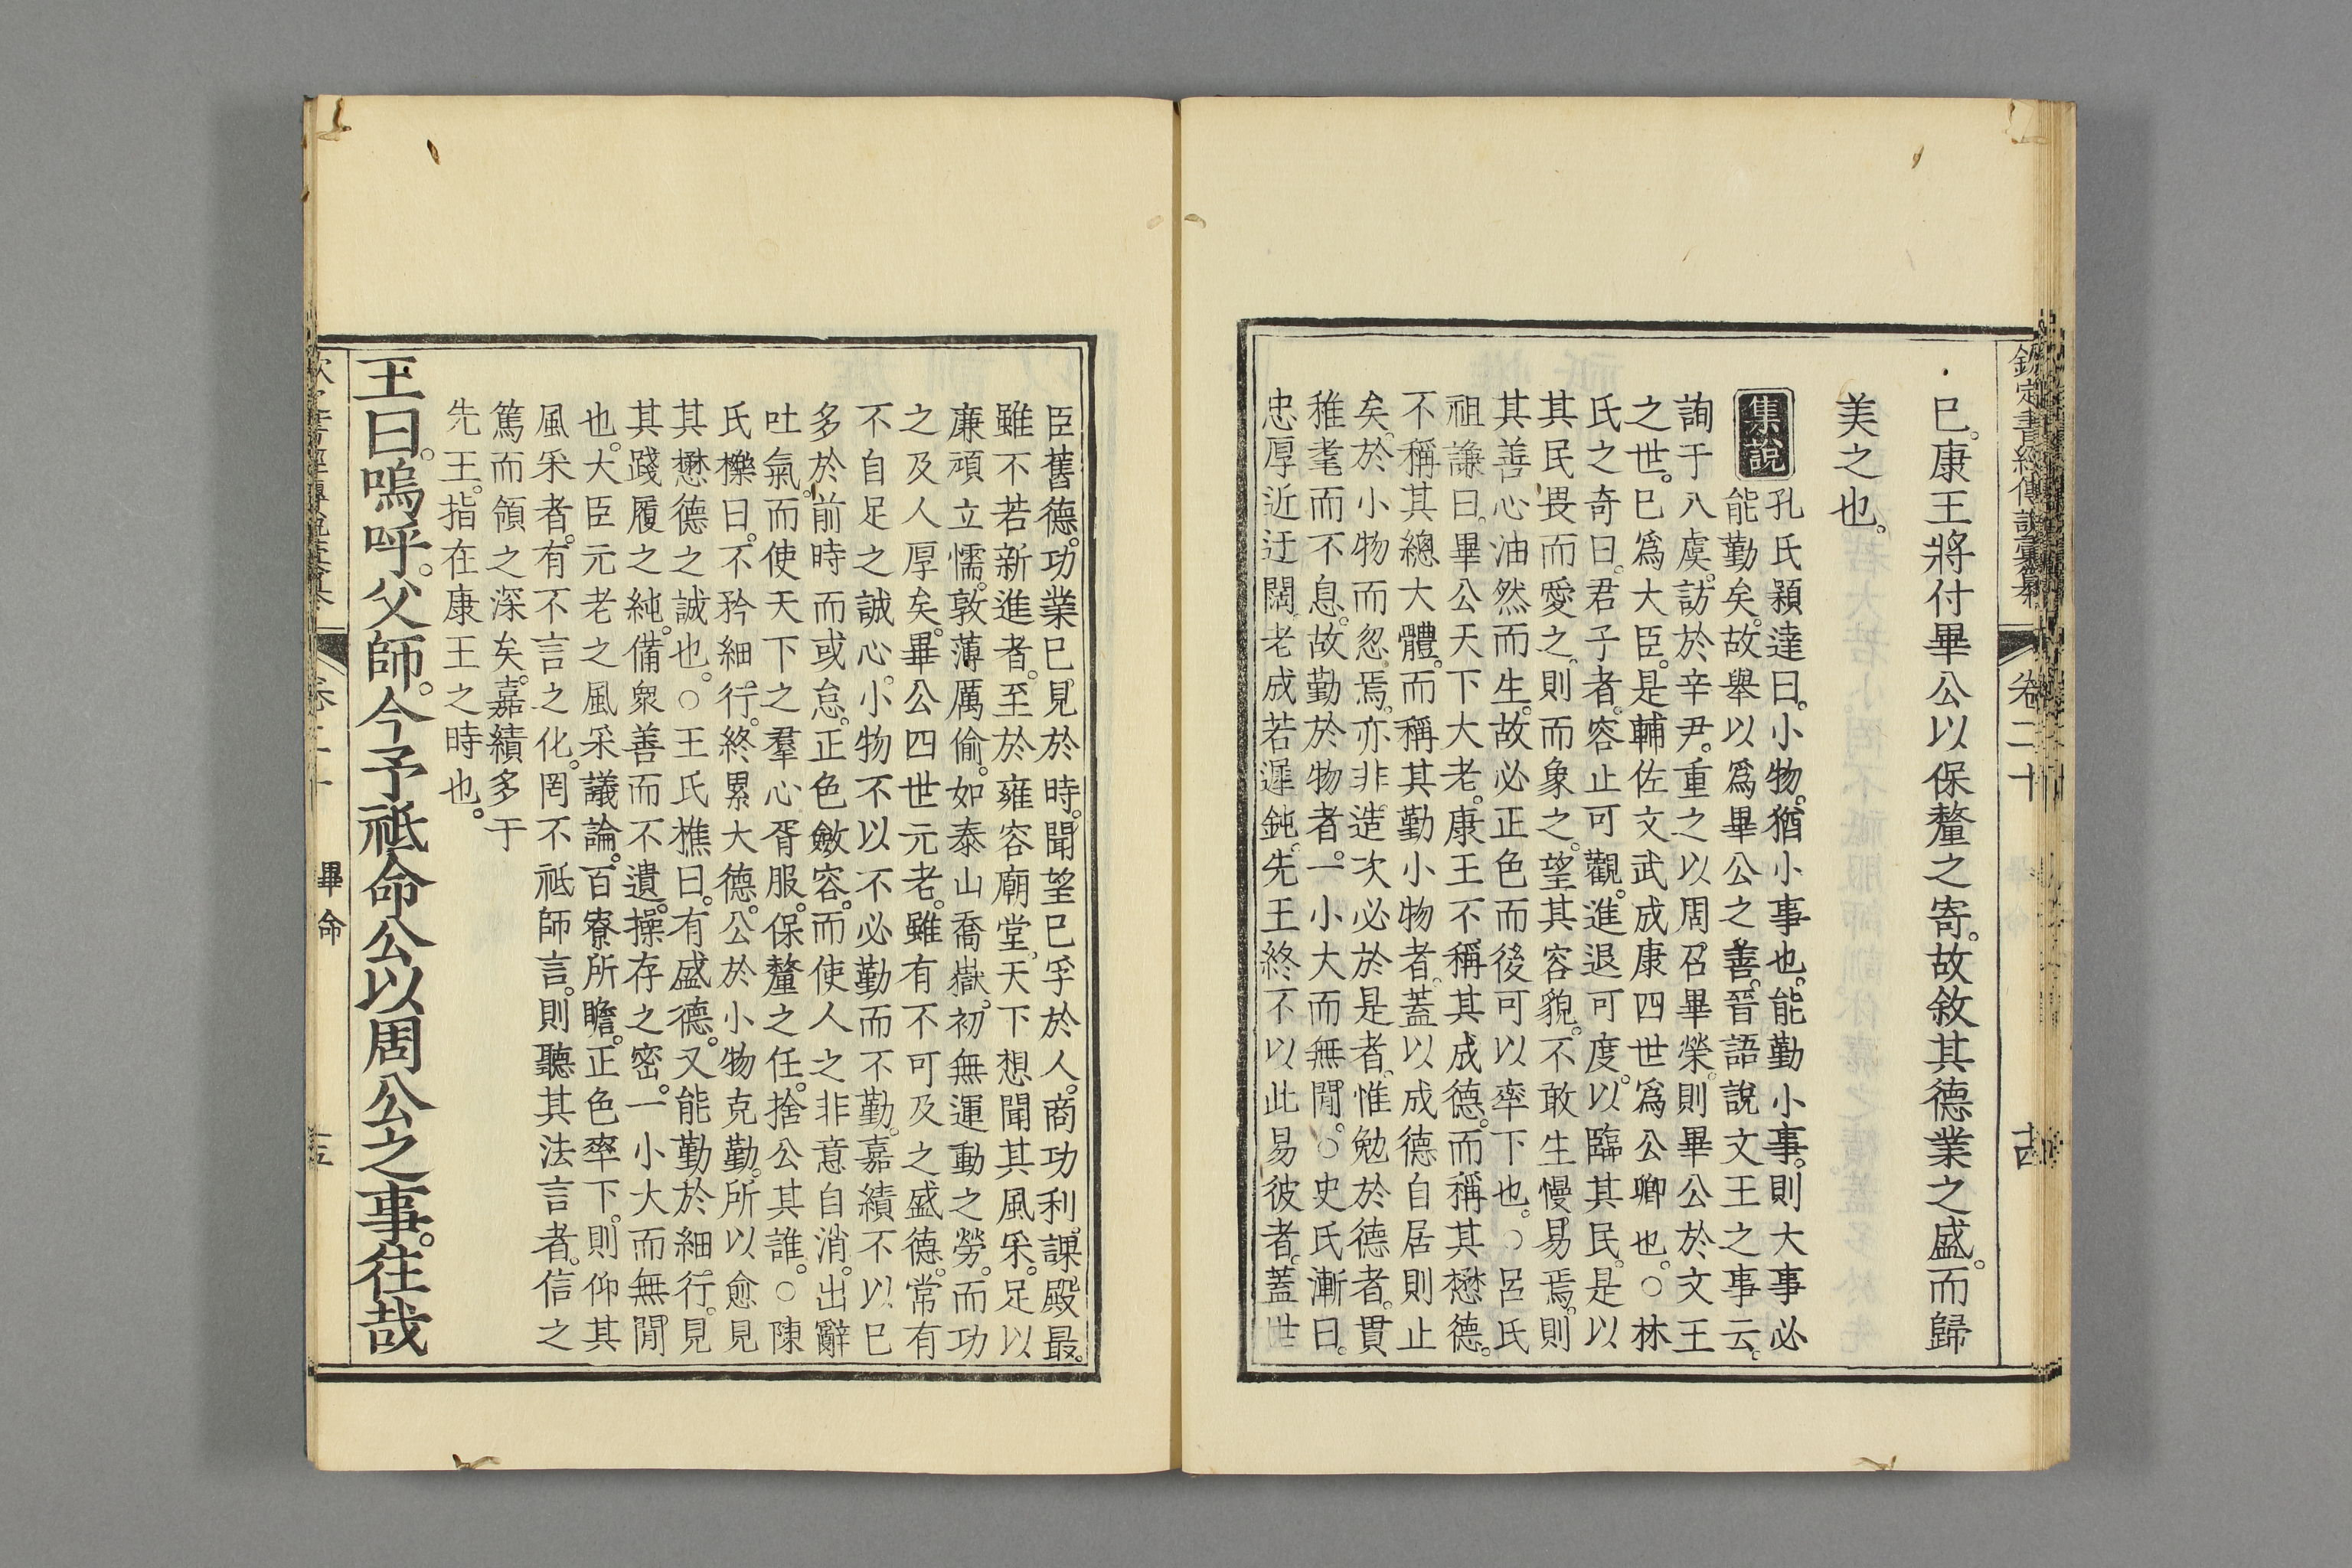 欽定書經傳說彙纂
卷二十
已。康王將付畢公以保釐之寄。故敘其德業之盛。而歸
美之也。
集說
孔氏穎達曰。小物。猶小事也。能勤小事。則大事必
能勤矣。故舉以爲畢公之善。晉語說文王之事云。
詢于八虞。訪於辛尹。重之以周召畢榮。則畢公於文王
之世。已爲大臣。是輔佐文武成康四世爲公卿也。○林
氏之奇曰。君子者。容止可觀。進退可度。以臨其民。是以
其民畏而愛之。則而象之。望其容貌。不敢生慢易焉。則
其善心油然而生。故必正色而後可以率下也。○呂氏
祖謙曰。畢公天下大老。康王不稱其成德。而稱其懋德。
不稱其總大體。而稱其勤小物者。蓋以成德自居則止
矣。於小物而忽焉。亦非造次必於是者。惟勉於德者。貫
稚耄而不息。故勤於物者。一小大而無閒。○史氏漸曰。
忠厚近迂闊。老成若遲鈍。先王終不以此易彼者。蓋世
臣舊德。功業已見於時。聞望已孚於人。商功利。課殿最。
雖不若新進者。至於雍容廟堂。天下想聞其風采。足以
廉頑立懦。敦薄厲偷。如泰山喬嶽。初無運動之勞。而功
之及人厚矣。畢公四世元老。雖有不可及之盛德。常有
不自足之誠心。小物不以不必勤而不勤。嘉績不以已
多於前時而或怠。正色斂容。而使人之非意自消。出辭
吐氣。而使天下之羣心胥服。保釐之任。捨公其誰。○陳
氏櫟曰。不矜細行。終累大德。公於小物克勤。所以愈見
其懋德之誠也。○王氏樵曰。有盛德。又能勤於細行。見
其踐履之純。備衆善而不遺。操存之密。一小大而無閒
也。大臣元老之風采議論。百寮所瞻。正色率下。則仰其
風采者。有不言之化。罔不祗師言。則聽其法言者。信之
篤而領之深矣。嘉績多于
先王。指在康王之時也。
王曰。嗚呼。父師。今予祗命公以周公之事。往哉
畢命